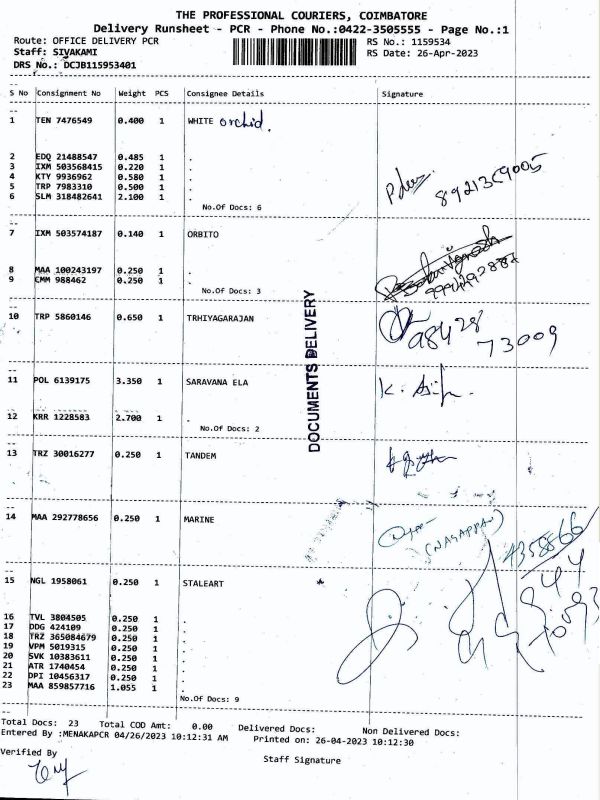 THE PROFESSIONAL COURIERS, COIMBATORE
Delivery Runsheet - PCR - Phone No.:0422-3505555 - Page No.:1
Route: OFFICE DELIVERY PCR RS No.: 1159534
Staff: SIVAKAMI RS Date: 26-Apr-2023
DRS No.: DCJB115953401
S No Consignment No Weight PCS Consignee Details Signature
1 TEN 7476549 0.400 1 WHITE orchid.
2 EDQ 21488547 0.485 1 .
3 IXM 503568415 0.220 1 .
4 KTY 9936962 0.580 1 .
5 TRP 7983310 0.500 1 .
6 SLM 318482641 2.100 1 .
No.Of Docs: 6
7 IXM 503574187 0.140 1 ORBITO
8 MAA 100243197 0.250 1 .
9 CMM 988462 0.250 1 .
No.Of Docs: 3
10 TRP 5860146 0.650 1 TRHIYAGARAJAN
98428
73009
DOCUMENTS DELIVERY
11 POL 6139175 3.350 1 SARAVANA ELA
12 KRR 1228583 2.700 1 .
No.Of Docs: 2
13 TRZ 30016277 0.250 1 TANDEM
14 MAA 292778656 0.250 1 MARINE
(NAGAPPAN)
15 NGL 1958061 0.250 1 STALEART
16 TVL 3804505 0.250 1 .
17 DDG 424109 0.250 1 .
18 TRZ 365084679 0.250 1 .
19 VPM 5019315 0.250 1 .
20 SVK 10383611 0.250 1 .
21 ATR 1740454 0.250 1 .
22 DPI 10456317 0.250 1 .
23 MAA 859857716 1.055 1 .
No.Of Docs: 9
Total Docs: 23 Total COD Amt: 0.00 Delivered Docs: Non Delivered Docs:
Entered By :MENAKAPCR 04/26/2023 10:12:31 AM Printed on: 26-04-2023 10:12:30
Verified By
Staff Signature